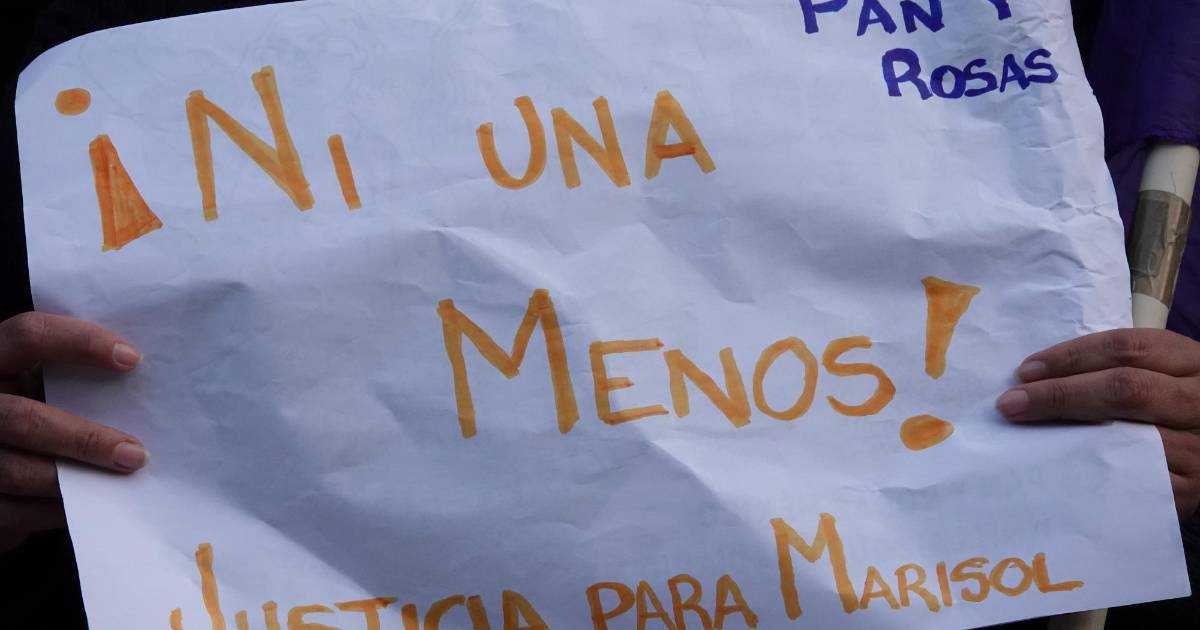 PAN Y
ROSAS
¡NI UNA
MENOS!
JUSTICIA PARA MARISOL